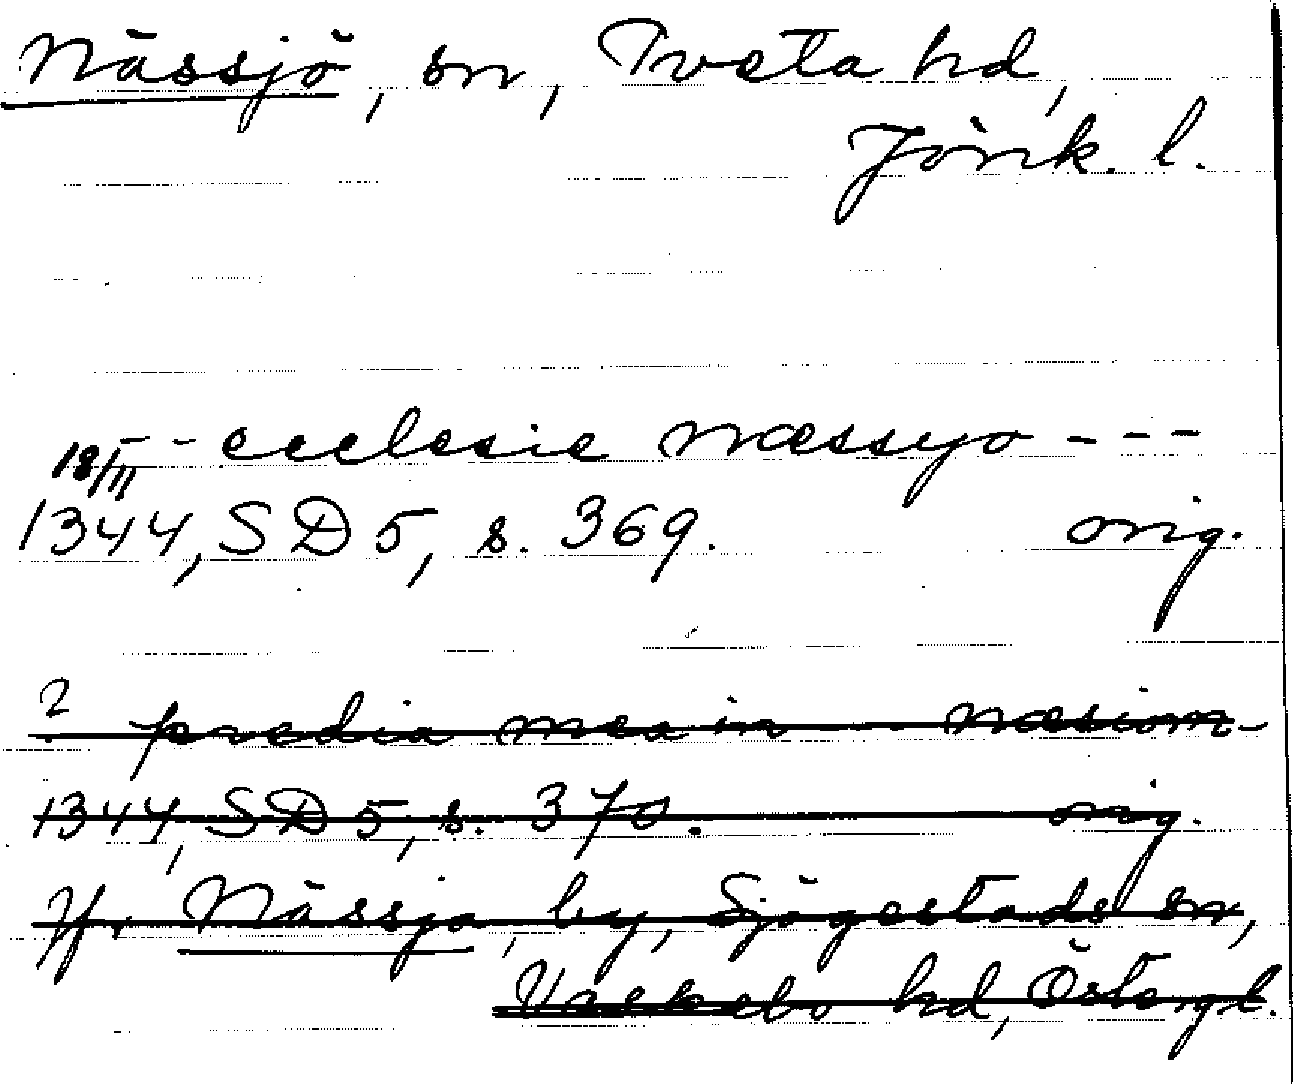 Nässjö, sn, Tveta hd,
Jönk. l.
18/II - - ecclesie næssyo - - -
1344, SD 5, s. 369. orig.
? predia mea in - - næsiom -
1344, SD 5, s. 370. orig.
Jf. Nässja, by, Sjögestads sn,
Valkebo hd, Östergl.